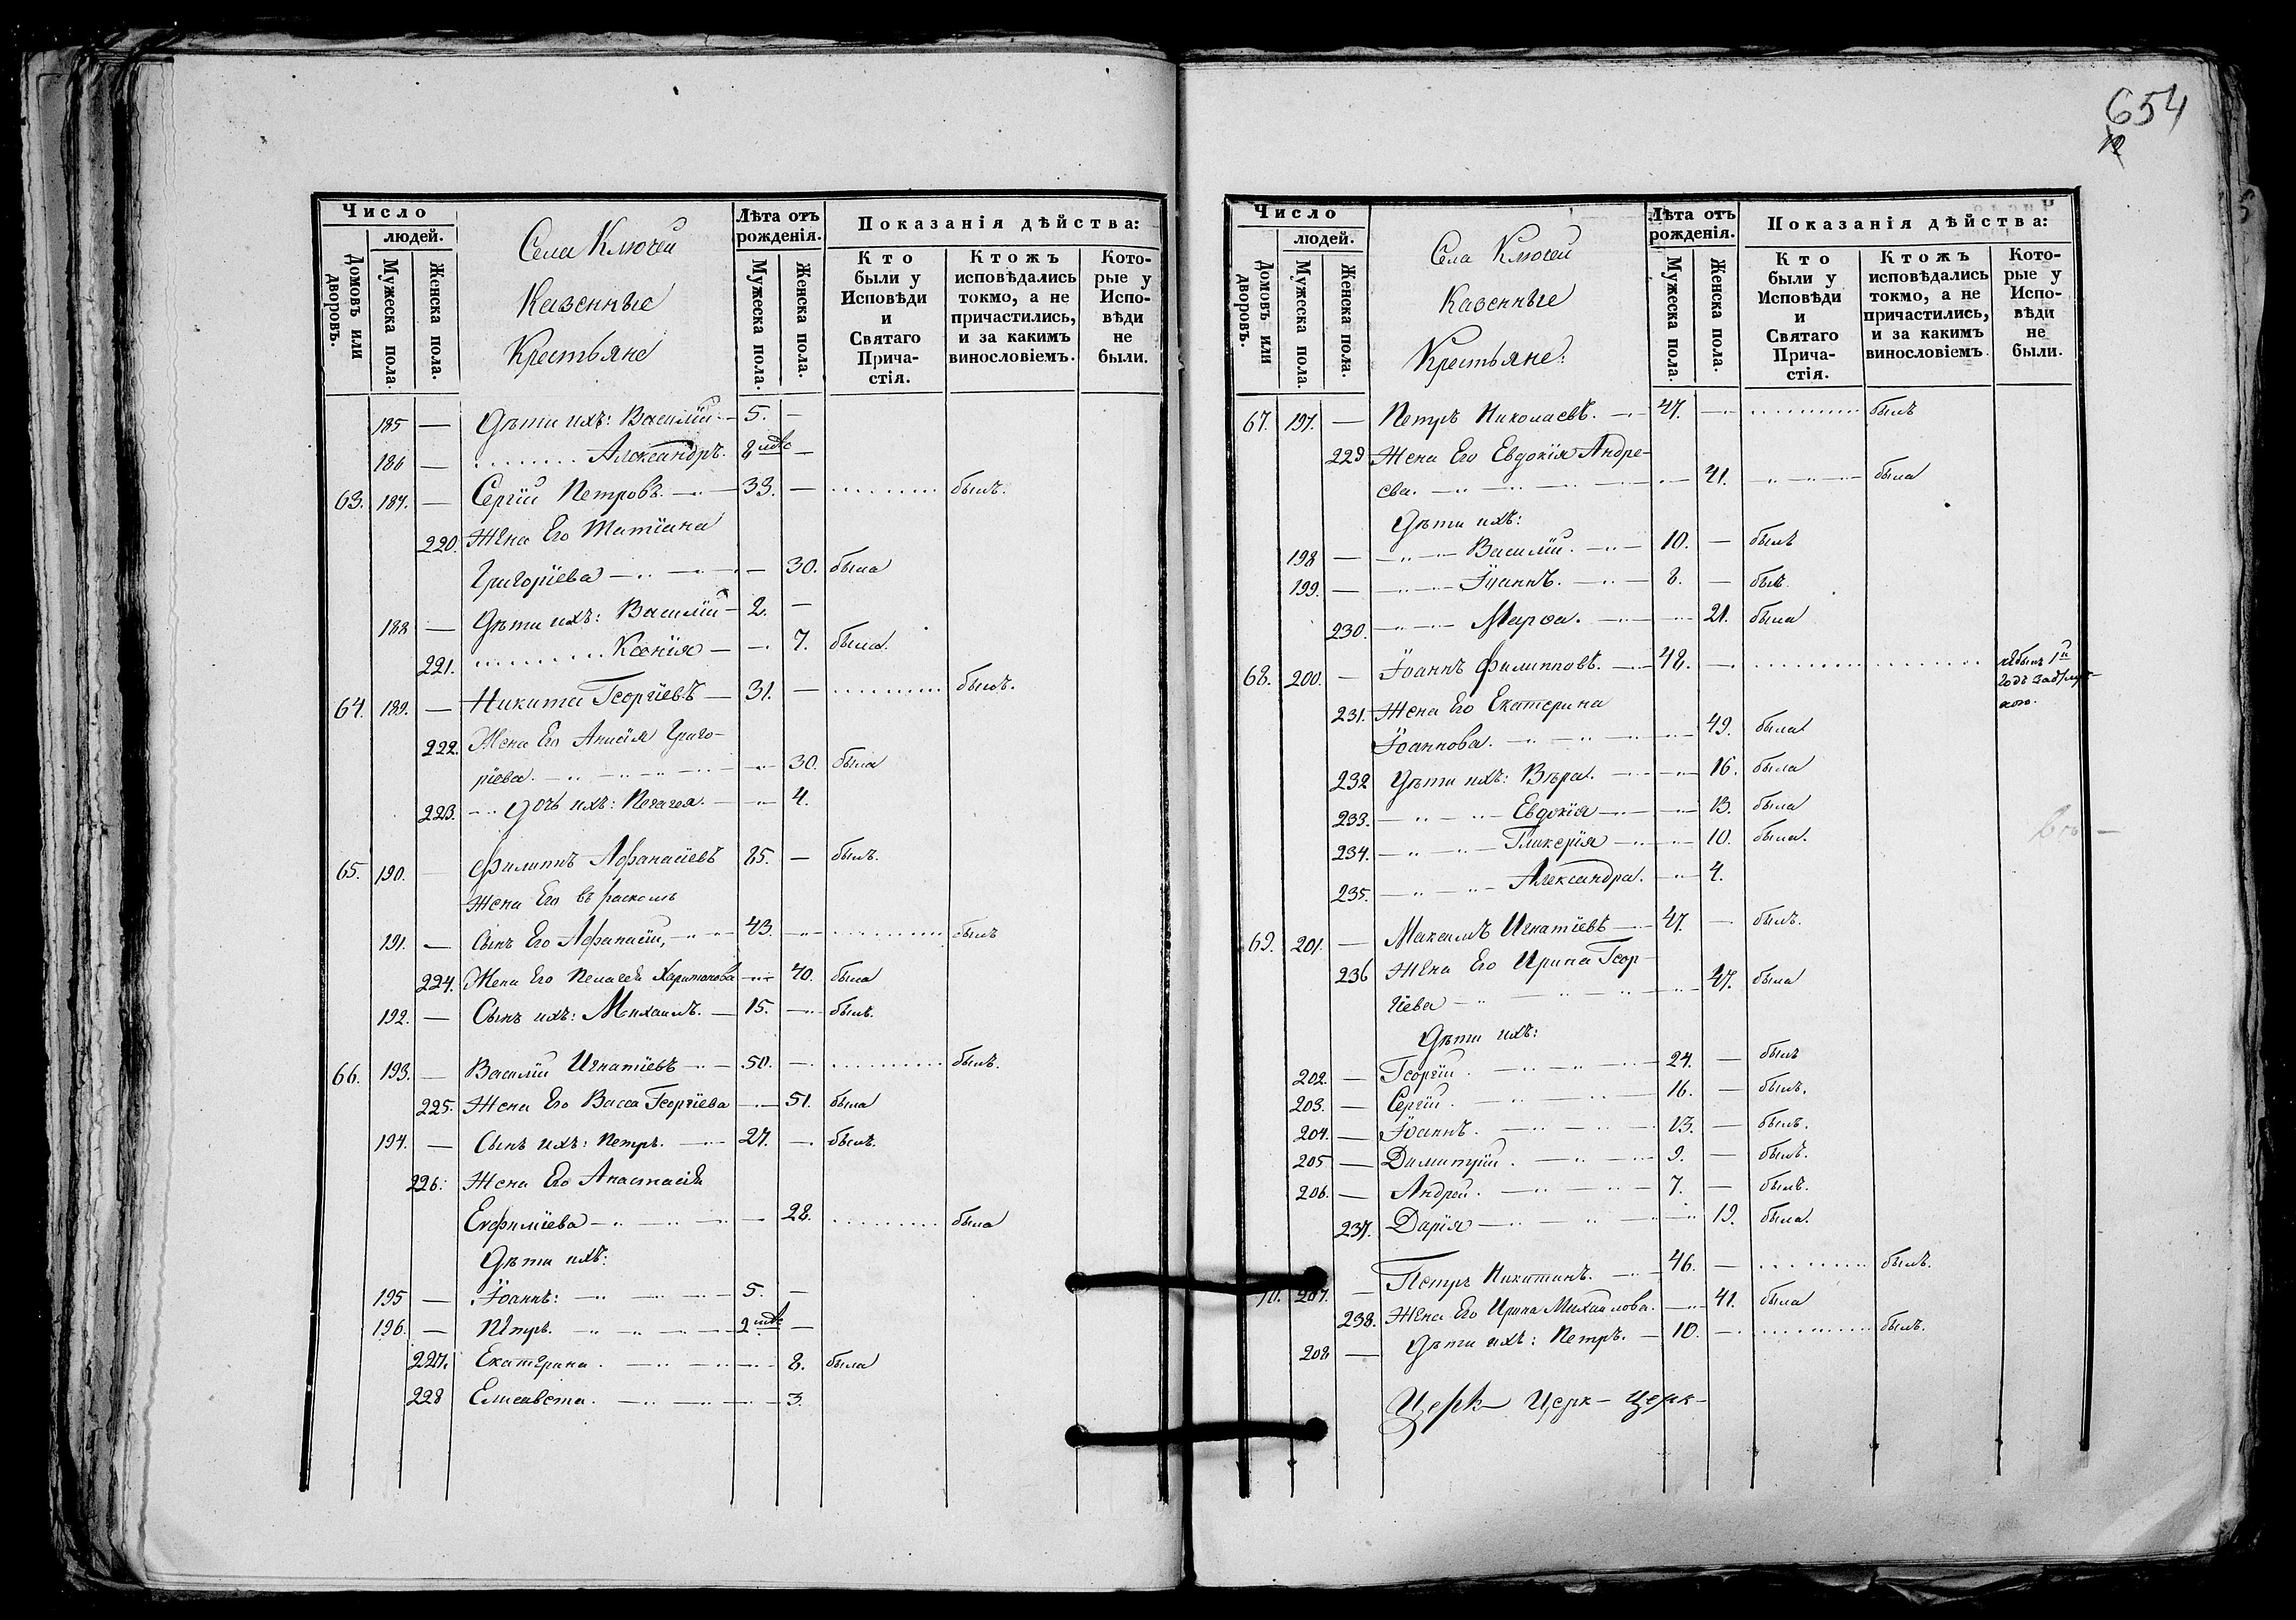 654
12
Число
людей.
Домовъ или дворовъ.
Мужеска пола.
Женска пола.
Села Ключей
Казенные
Крестьяне
Лѣта отъ рожденія.
Мужеска пола.
Женска пола.
Показанія дѣйства:
Кто были у Исповѣди и Святаго Прича-стія.
Ктожъ исповѣдались токмо, а не причастились, и за какимъ винословіемъ.
Кото-рые у Испо-вѣди не были.
185 — Дѣти ихъ: Василій — 5. —
186 — Александръ. 2 —
63. 187. — Сергій Петровъ. — 33. — былъ.
220. Жена Его Татіана
Григоріева — 30. была
188 — Дѣти ихъ: Василій — 2. —
221. Ксенія — 7. была.
64. 189. — Никита Георгіевъ — 31. — былъ.
222. Жена Его Анисія Григо-
ріева. — 30. была
223. — дочь ихъ: Пелагея. — 4.
65. 190. — Филиппъ Афанасіевъ 85. — былъ.
Жена Его въ расколѣ
191. — Сынъ Его Афанасій, — 43. — былъ
224. Жена Его Пелагея Харитонова — 40. была
192. — Сынъ ихъ: Михаилъ. — 15. — былъ.
66. 193. — Василій Игнатіевъ — 50. — былъ.
225. Жена Его Васса Георгіева — 51. была
194. — Сынъ ихъ: Петръ. — 27. — былъ.
226. Жена Его Анастасія
Евфиміева — 28. была
Дѣти ихъ:
195 — Іоаннъ: — 5. —
196. — Петръ. — 2 —
227. Екатерина. — 8. была
228 Елисавета. — 3.
Число
людей.
Домовъ или дворовъ.
Мужеска пола.
Женска пола.
Села Ключей
Казенные
Крестьяне:
Лѣта отъ рожденія.
Мужеска пола.
Женска пола.
Показанія дѣйства:
Кто были у Исповѣди и Святаго Прича-стія.
Ктожъ исповѣдались токмо, а не причастились, и за какимъ винословіемъ.
Кото-рые у Испо-вѣди не были.
67. 197. — Петръ Николаевъ. — 47. — былъ
229 Жена Его Евдокія Андре-
ева. — 41. — была
Дѣти ихъ:
198 — Василій. — 10. — былъ
199. — Іоаннъ. — 8. — былъ
230. — Марѳа. — 21. была
68. 200. — Іоаннъ Филипповъ. — 48. — небылъ 1й
годъ
231. Жена Его Екатерина
Іоаннова. — 49. была
232 Дѣти ихъ: Вѣра. — 16. была
233. — Евдокія — 13. была
234. — Гликерія — 10. была.
235. — Александра. — 4.
69. 201. — Максимъ Игнатіевъ — 47. — былъ.
236 Жена Его Ирина Геор-
гіева — 47. была
Дѣти ихъ:
202. — Георгій. — 24. — былъ
203. — Сергій. — 16. — былъ.
204. — Іоаннъ. — 13. — былъ.
205 — Димитрій. — 9. — былъ.
206. — Андрей. — 7. — былъ.
237. Дарія — 19. была.
70. 207. — Петръ Никитинъ. — 46. — былъ.
238. Жена Его Ирина Михаилова. — 41. была
208 — Дѣти ихъ: Петръ. — 10. — былъ.
Церк— Церк— Церк—